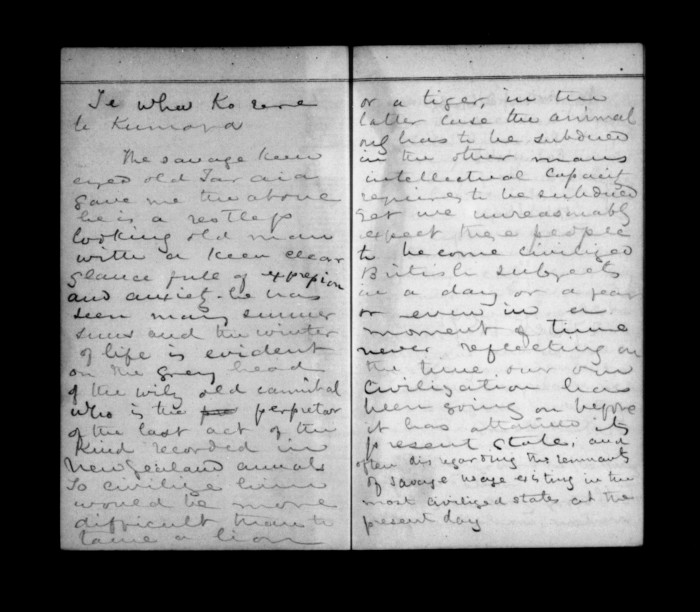 Te whaka
te Kumara
The savage keen
eyed old Taraia
gave me the above
he is a restless
looking old man
with a keen clear
glance full of expression
and anxiety - he has
seen many summer
suns and the winter
of life is evident
on the grey head
of the wily old cannibal
who is the perpetor
of the last act of the
kind recorded in
New Zealand annals
To civilize him
would be more
difficult than to
tame a lion
or a tiger, in the
latter case the animal
only has to be subdued
in the other mans
intellectual capacity
requires to be subdued
yet we unreasonably
expect these people
to become civilized
British subjects
in a day or a year
or even in a
moment of time
never reflecting on
the time our own
civilization has
been going on before
it has attained its
present state, and
often disregarding the remnants
of savage usage existing in the
most civilized states at the
present day